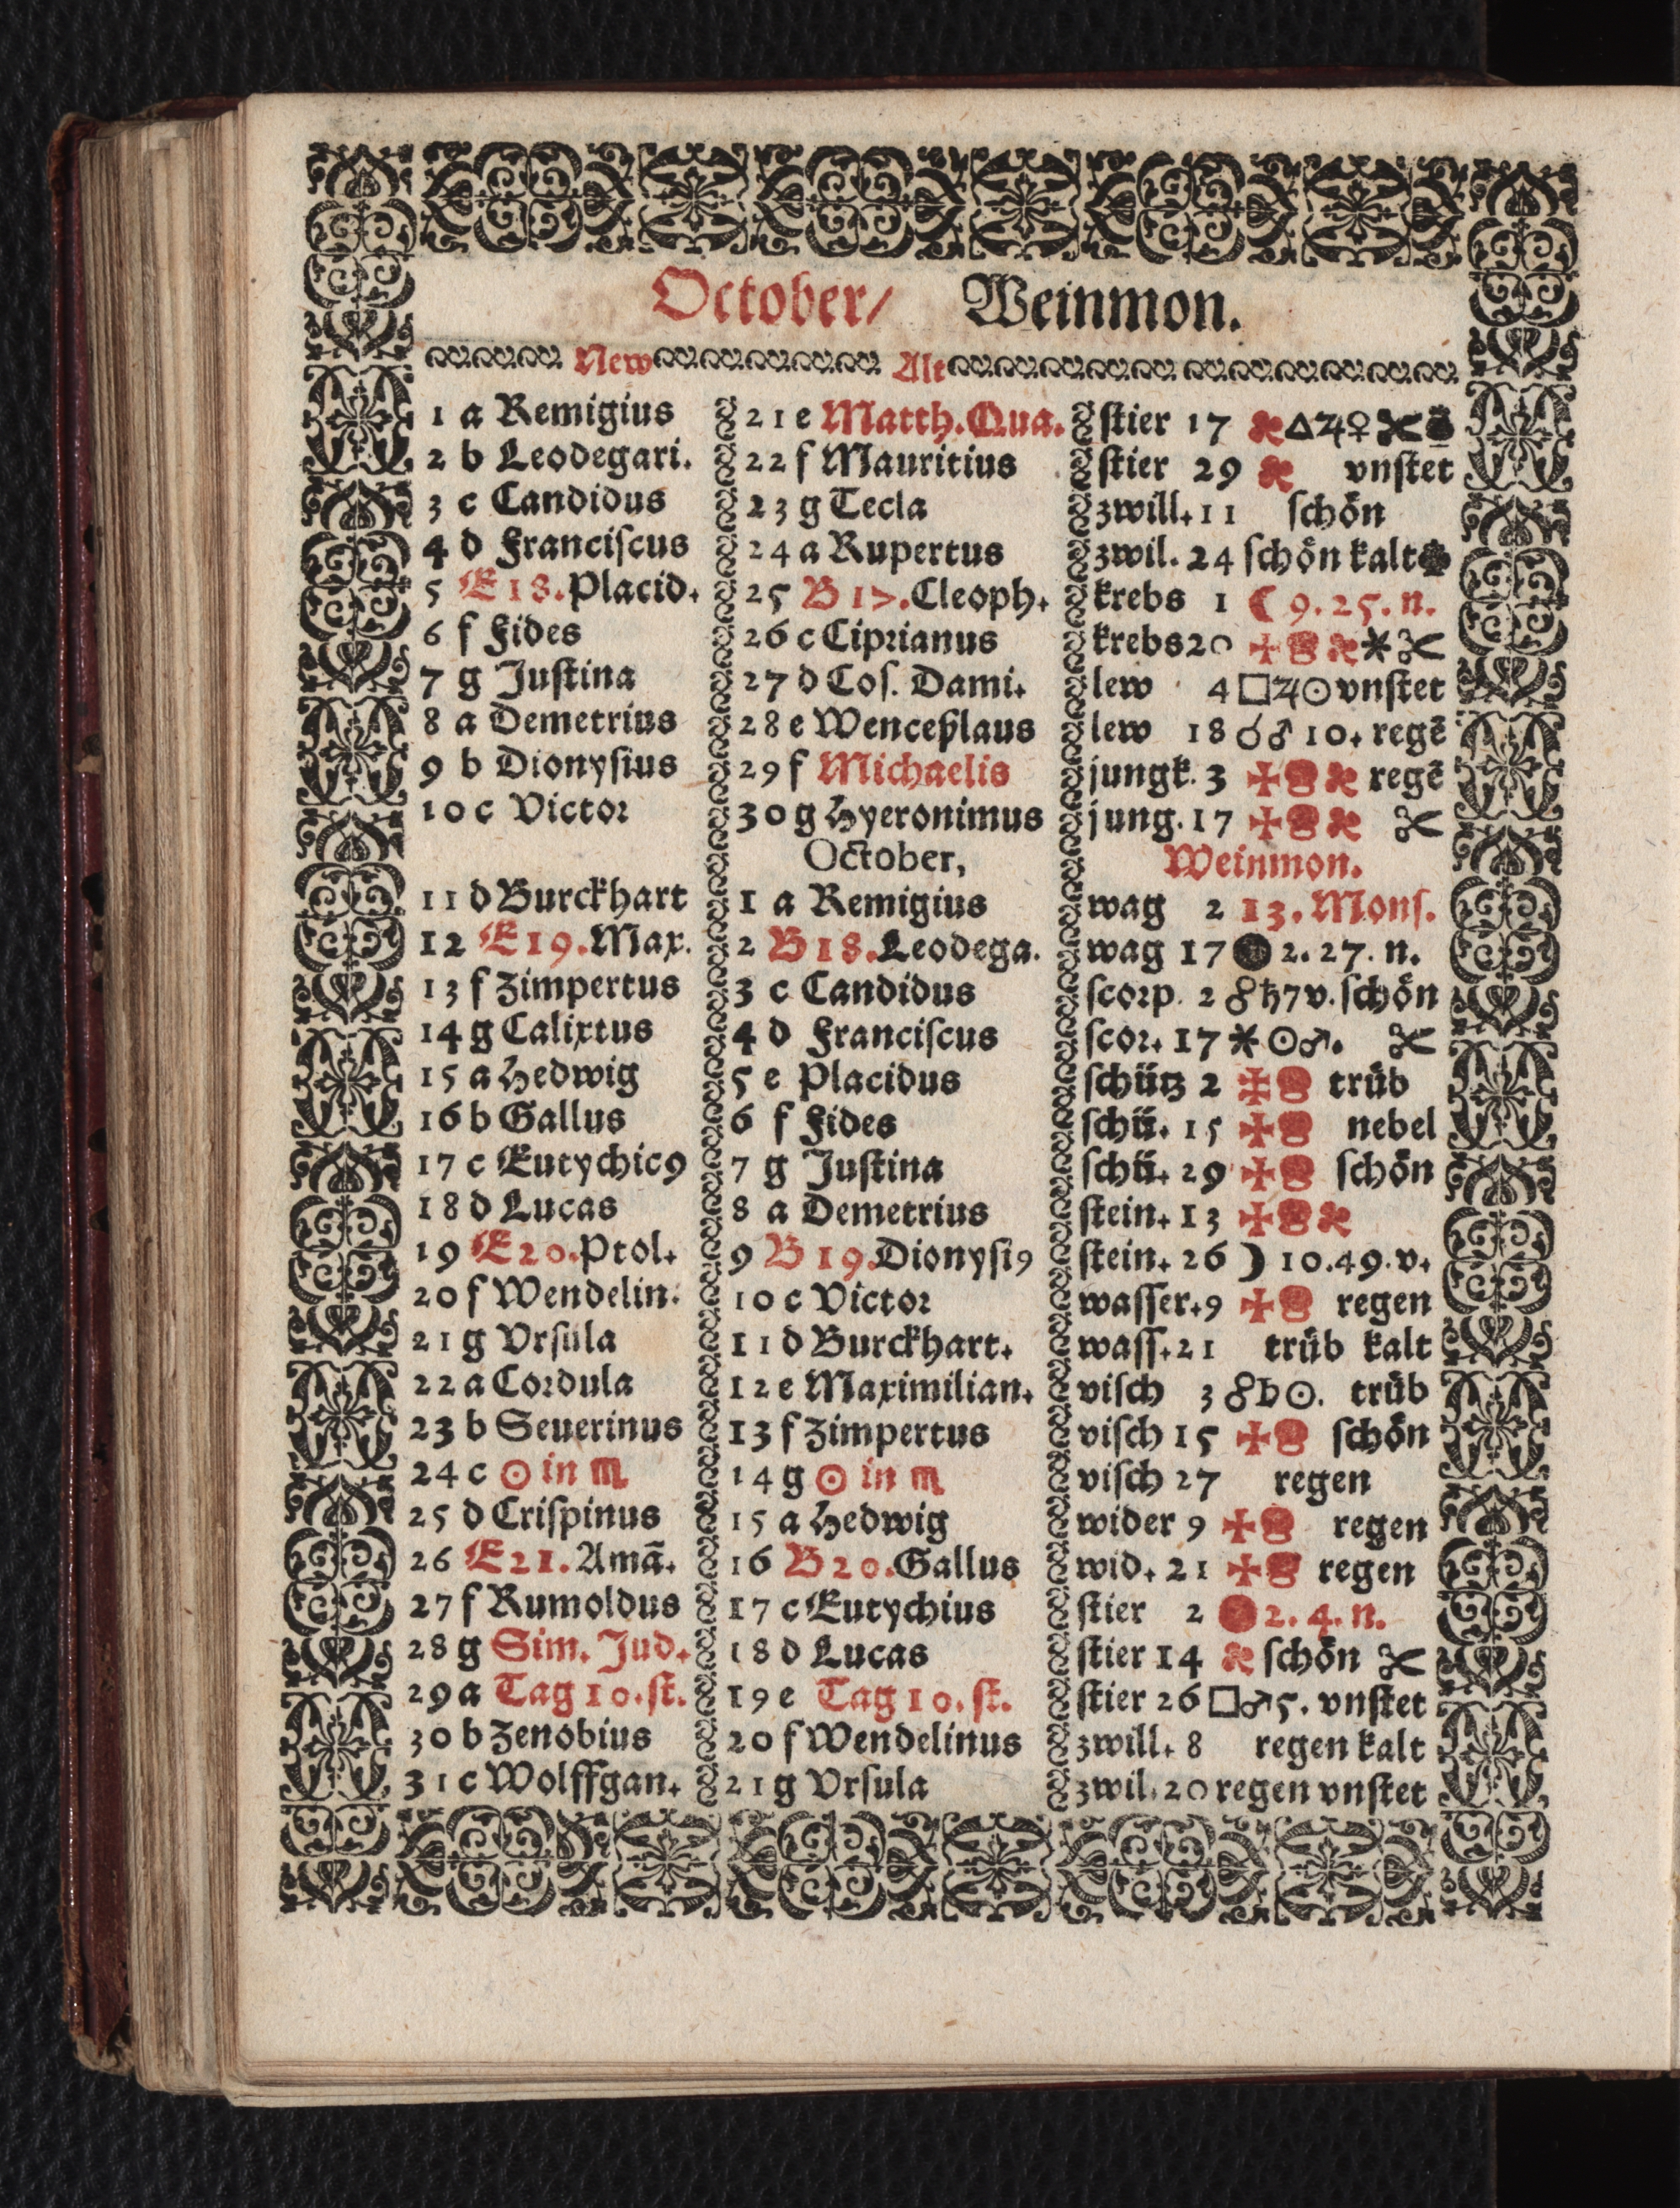 October/ Weinmon.
New Alt
1 a Remigius 21 e Matth. Qua. stier 17 △♃♀
2 b Leodegari. 22 f Mauritius stier 29 vnstet
3 c Candidus 23 g Tecla zwill. 11 schön
4 d Franciscus 24 a Rupertus zwil. 24 schön kalt
5 E 18. Placid. 25 B 17. Cleoph. krebs 1 ☾ 9. 25. n.
6 f Fides 26 c Ciprianus krebs 20 ✠ ⚹ ✂
7 g Justina 27 d Cos. Dami. lew 4 □♃☉ vnstet
8 a Demetrius 28 e Wenceßlaus lew 18 ☌♂ 10. regē
9 b Dionysius 29 f Michaelis jungk. 3 ✠ regē
10 c Victor 30 g Hyeronimus jung. 17 ✠ ✂
October, Weinmon.
11 d Burckhart 1 a Remigius wag 2 13. Mons.
12 E 19. Max. 2 B 18. Leodega. wag 17 ● 2. 27. n.
13 f Zimpertus 3 c Candidus scorp. 2 ☍♄ 7 v. schön
14 g Calixtus 4 d Franciscus scor. 17 ⚹☉♂. ✂
15 a Hedwig 5 e Placidus schütz 2 ✠ trüb
16 b Gallus 6 f Fides schü. 15 ✠ nebel
17 c Eutychic9 7 g Justina schü. 29 ✠ schön
18 d Lucas 8 a Demetrius stein. 13 ✠
19 E 20. Ptol. 9 B 19. Dionysi9 stein. 26 ☽ 10. 49. v.
20 f Wendelin. 10 c Victor wasser. 9 ✠ regen
21 g Vrsula 11 d Burckhart. wass. 21 trüb kalt
22 a Cordula 12 e Maximilian. visch 3 ☍♄☉. trüb
23 b Seuerinus 13 f Zimpertus visch 15 ✠ schön
24 c ☉ in ♏ 14 g ☉ in ♏ visch 27 regen
25 d Crispinus 15 a Hedwig wider 9 ✠ regen
26 E 21. Amā. 16 B 20. Gallus wid. 21 ✠ regen
27 f Rumoldus 17 c Eutychius stier 2 ● 2. 4. n.
28 g Sim. Jud. 18 d Lucas stier 14 schön ✂
29 a Tag 10. st. 19 e Tag 10. st. stier 26 □♂ 5. vnstet
30 b Zenobius 20 f Wendelinus zwill. 8 regen kalt
31 c Wolffgan. 21 g Vrsula zwil. 20 regen vnstet